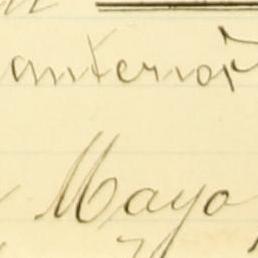 anterior
Mayo